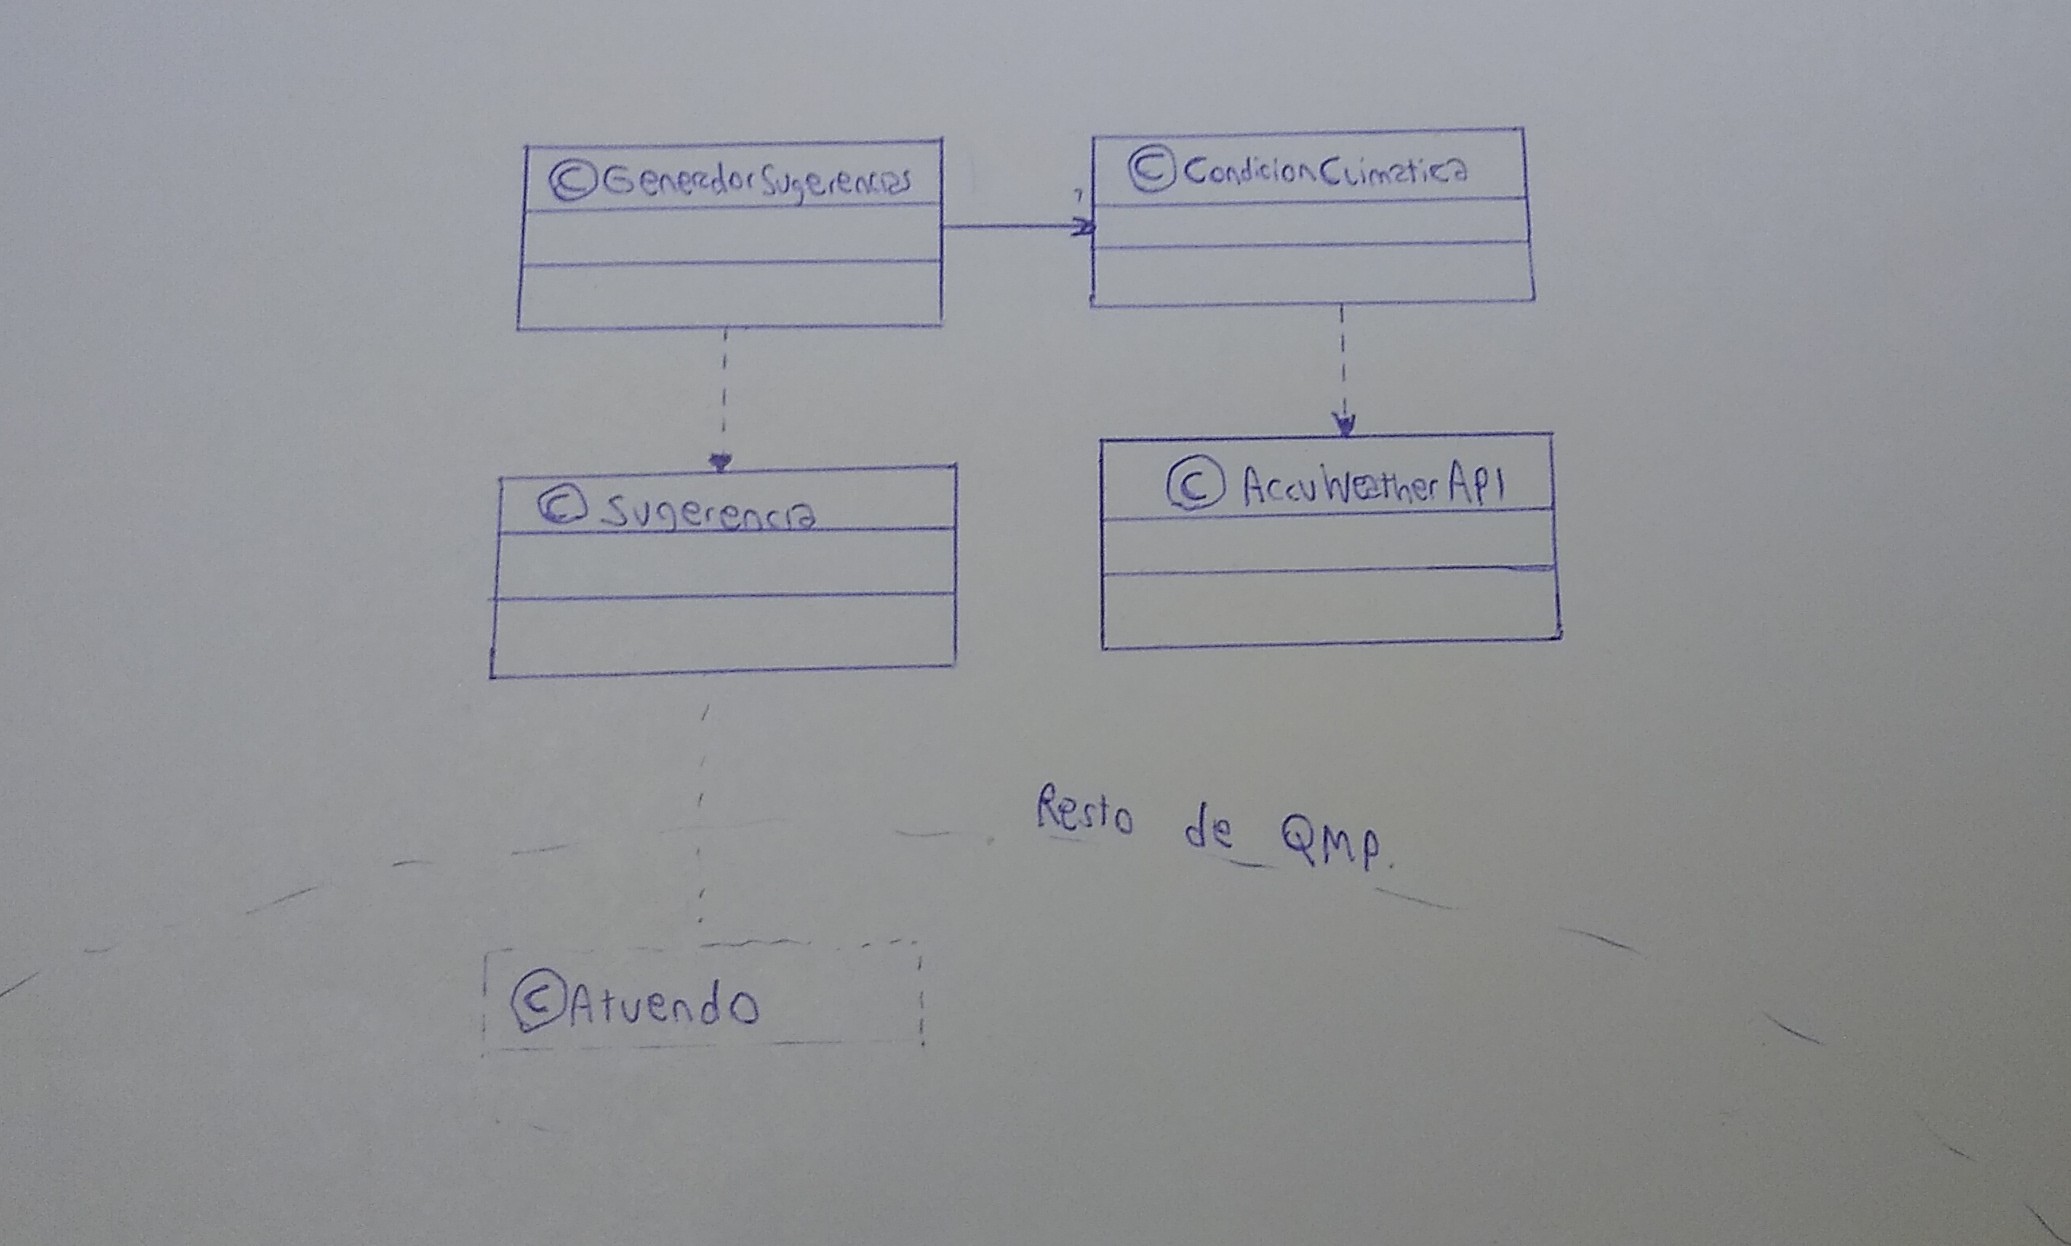 ©GeneradorSugerencias
©CondicionClimatica
©Sugerencia
©AccuWeatherAPI
Resto de QMP.
©Atuendo